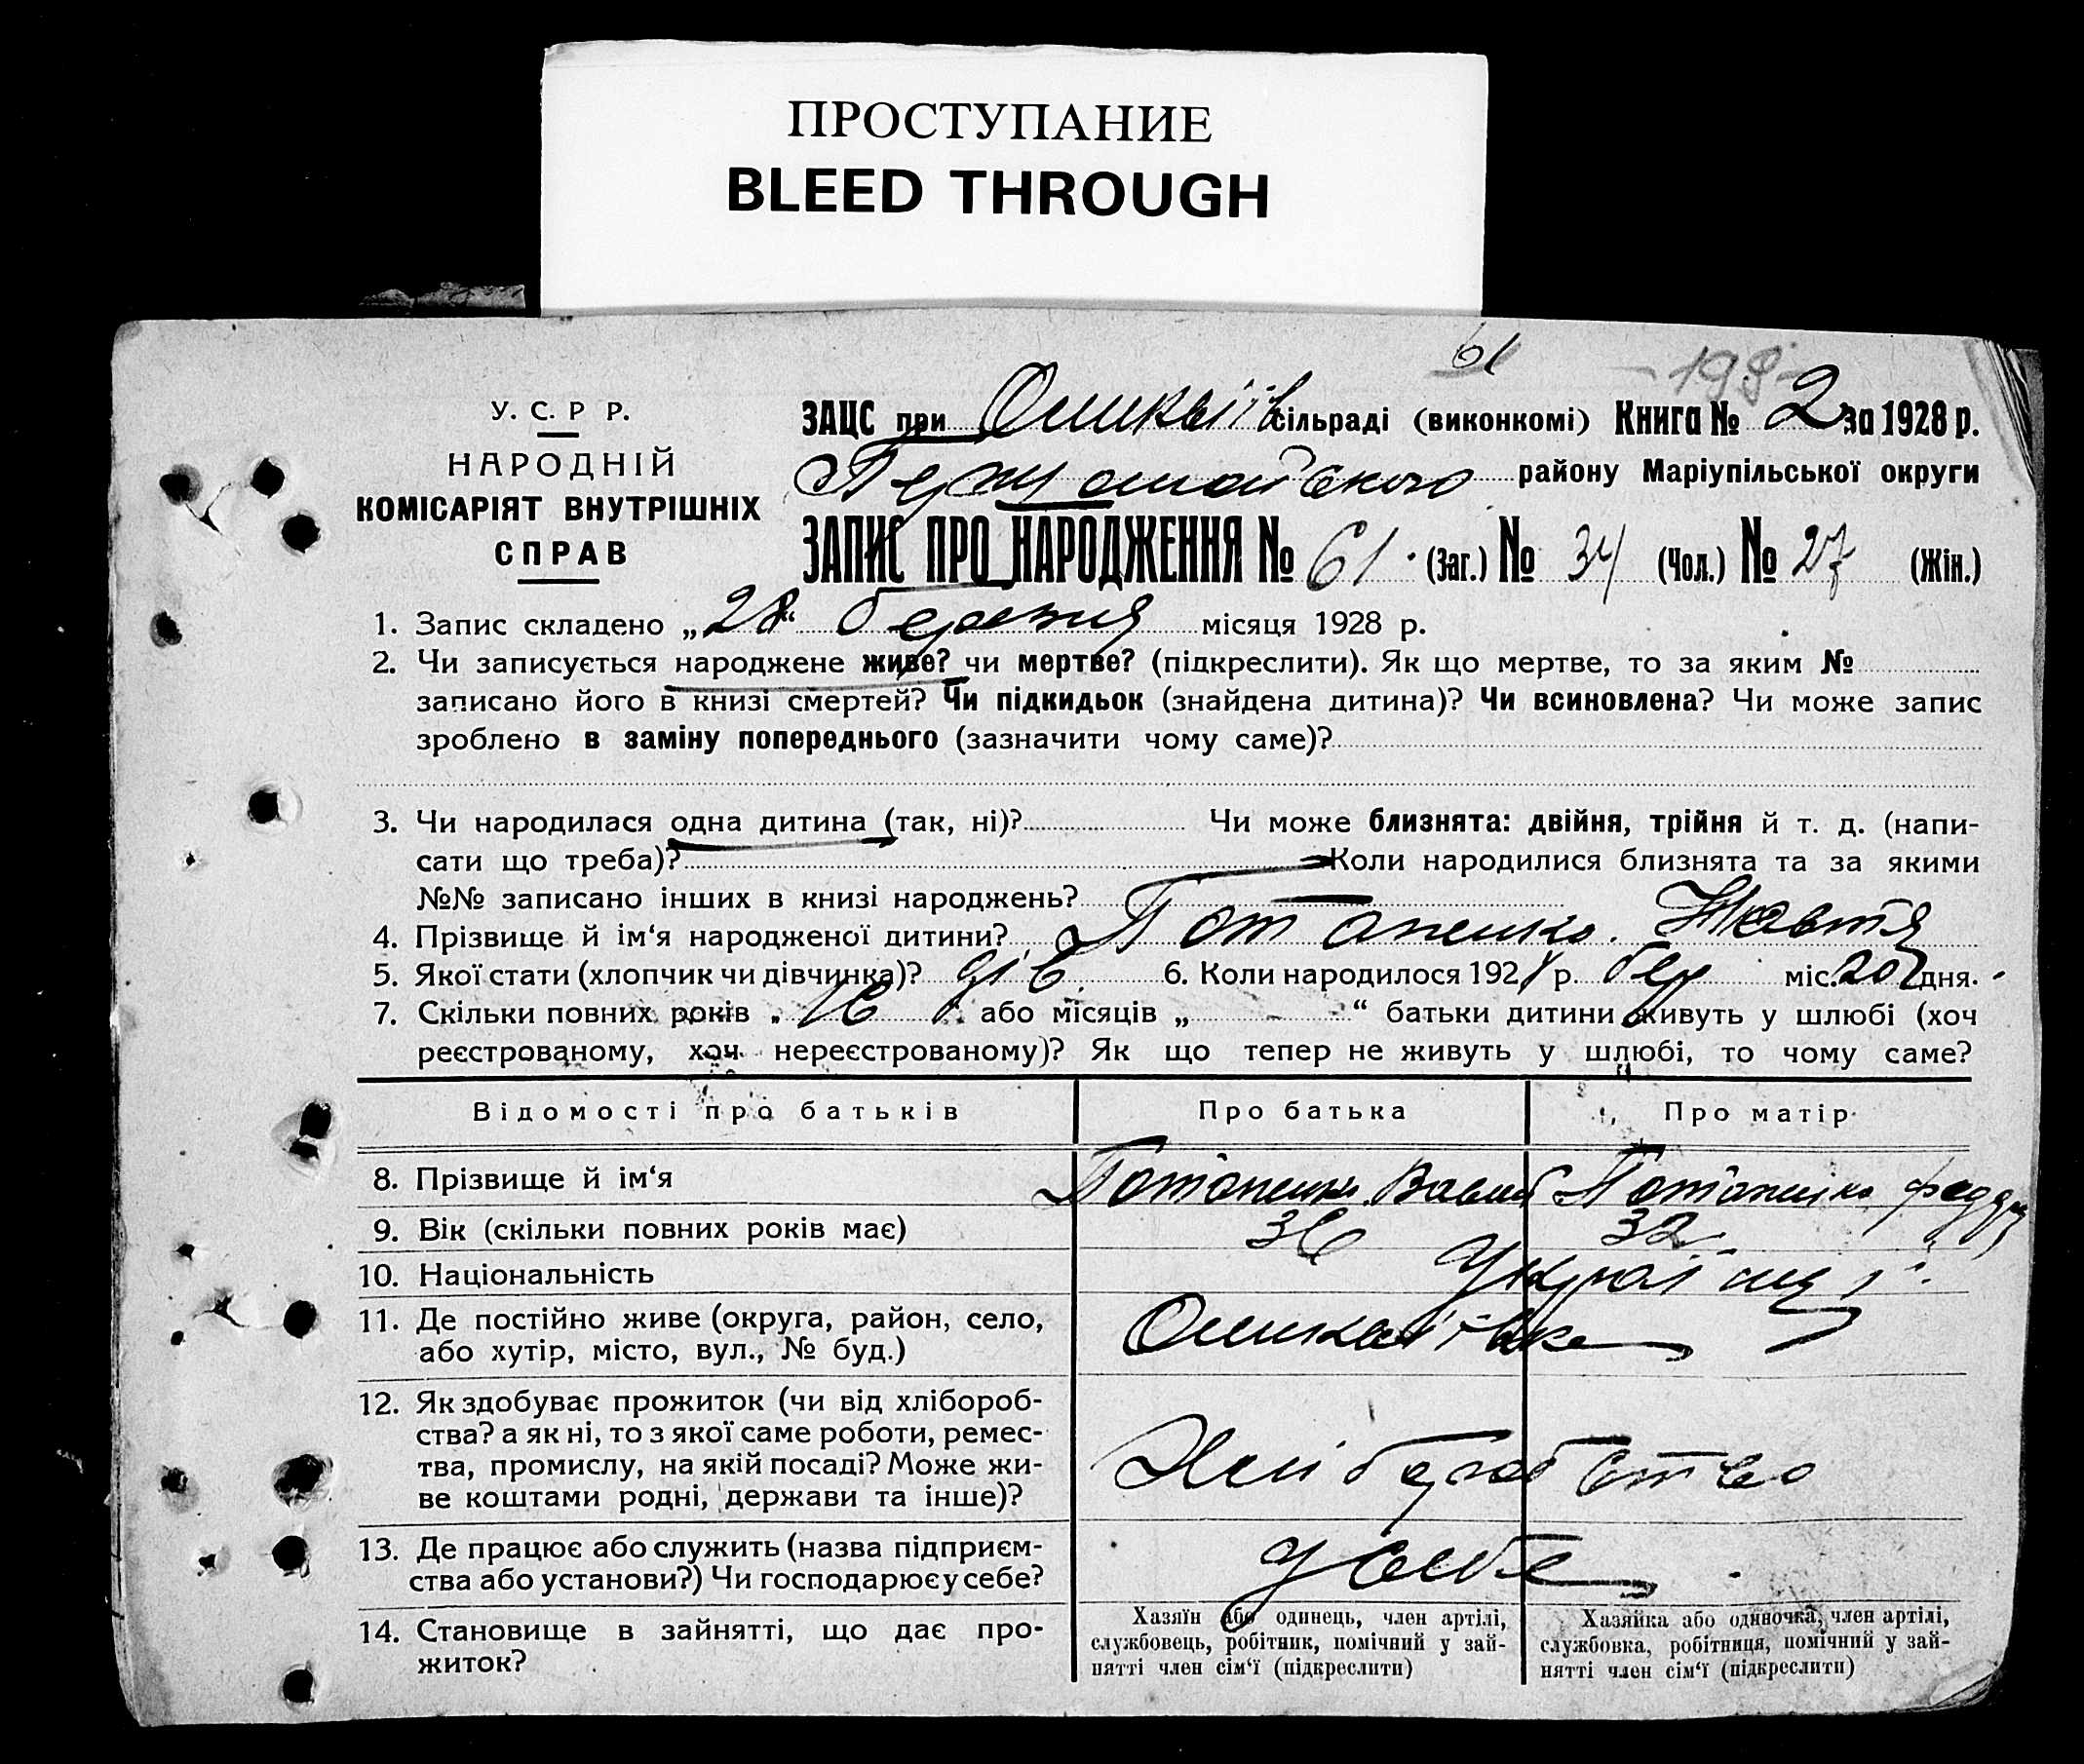 ПРОСТУПАНИЕ
BLEED THROUGH
61
-198-
У. С. Р Р.
НАРОДНІЙ
КОМІСАРІЯТ ВНУТРІШНІХ
СПРАВ
ЗАЦС при сільраді (виконкомі) Книга № 2 за 1928 р.
району Маріупільської округи
ЗАПИС ПРО НАРОДЖЕННЯ № 61 (Заг.) № 34 (Чол.) № 27 (Жін.)
1. Запис складено „28“ березня місяця 1928 р.
2. Чи записується народжене живе? чи мертве? (підкреслити). Як що мертве, то за яким №
записано його в книзі смертей? Чи підкидьок (знайдена дитина)? Чи всиновлена? Чи може запис
зроблено в заміну попереднього (зазначити чому саме)?
3. Чи народилася одна дитина (так, ні)? Чи може близнята: двійня, трійня й т. д. (напи-
сати що треба)? Коли народилися близнята та за якими
№№ записано інших в книзі народжень?
4. Прізвище й ім‘я народженої дитини? Потапенко
5. Якої стати (хлопчик чи дівчинка)? дів. 6. Коли народилося 1928 р. бер міс. 20 дня.
7. Скільки повних років „16“ або місяців „ - “ батьки дитини живуть у шлюбі (хоч
реєстрованому, хоч нереєстрованому)? Як що тепер не живуть у шлюбі, то чому саме?
Відомості про батьків Про батька Про матір
8. Прізвище й ім‘я Потапенко Потапенко
9. Вік (скільки повних років має) 36 32
10. Національність Українці
11. Де постійно живе (округа, район, село,
або хутір, місто, вул., № буд.)
12. Як здобуває прожиток (чи від хлібороб-
ства? а як ні, то з якої саме роботи, ремес-
тва, промислу, на якій посаді? Може жи-
ве коштами родні, держави та інше)?
Хліборобство
13. Де працює або служить (назва підприєм-
ства або установи?) Чи господарює у себе?
у себе
14. Становище в зайнятті, що дає про-
житок?
Хазяїн або одинець, член артілі,
службовець, робітник, помічний у зай-
нятті член сім‘ї (підкреслити)
Хазяйка або одиночка, член артілі,
службовка, робітниця, помічний у зай-
нятті член сім‘ї (підкреслити)